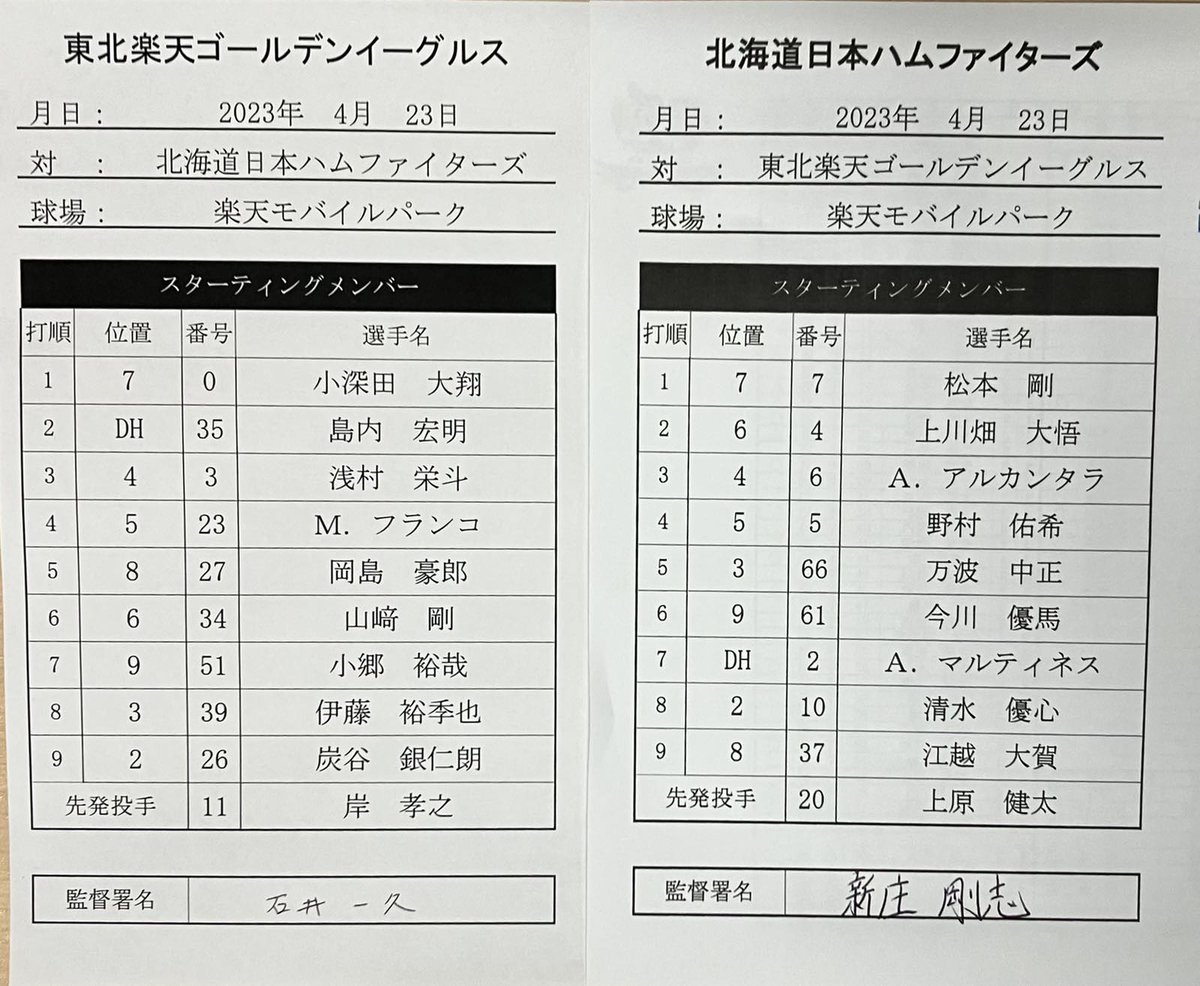 東北楽天ゴールデンイーグルス
月日： 2023年 4月 23日
対 ： 北海道日本ハムファイターズ
球場： 楽天モバイルパーク
スターティングメンバー
打順 位置 番号 選手名
1 7 0 小深田 大翔
2 DH 35 島内 宏明
3 4 3 浅村 栄斗
4 5 23 M．フランコ
5 8 27 岡島 豪郎
6 6 34 山﨑 剛
7 9 51 小郷 裕哉
8 3 39 伊藤 裕季也
9 2 26 炭谷 銀仁朗
先発投手 11 岸 孝之
監督署名 石井 一久
北海道日本ハムファイターズ
月日： 2023年 4月 23日
対 ： 東北楽天ゴールデンイーグルス
球場： 楽天モバイルパーク
スターティングメンバー
打順 位置 番号 選手名
1 7 7 松本 剛
2 6 4 上川畑 大悟
3 4 6 A．アルカンタラ
4 5 5 野村 佑希
5 3 66 万波 中正
6 9 61 今川 優馬
7 DH 2 A．マルティネス
8 2 10 清水 優心
9 8 37 江越 大賀
先発投手 20 上原 健太
監督署名 新庄 剛志